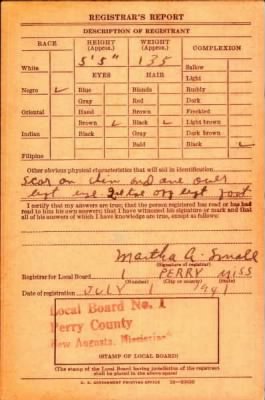 REGISTRAR'S REPORT
DESCRIPTION OF REGISTRANT
RACE HEIGHT (Approx.) WEIGHT (Approx.) COMPLEXION
5' 5" 135
White Sallow
EYES HAIR Light
Negro Blue Blonde Ruddy
Gray Red Dark
Oriental Hazel Brown Freckled
Brown Black Light brown
Indian Black Gray Dark brown
Bald Black
Filipino
Other obvious physical characteristics that will aid in identification
Scar on chin and one over
off foot
I certify that my answers are true; that the person registered has read or has had
read to him his own answers; that I have witnessed his signature or mark and that
all of his answers of which I have knowledge are true, except as follows:
Martha A. Small
(Signature of registrar)
Registrar for Local Board 1 PERRY MISS
(Number) (City or county) (State)
Date of registration JULY 1941
Local Board No. 1
Perry County
New Augusta, Mississippi
(STAMP OF LOCAL BOARD)
(The stamp of the Local Board having jurisdiction of the registrant
shall be placed in the above space)
U. S. GOVERNMENT PRINTING OFFICE